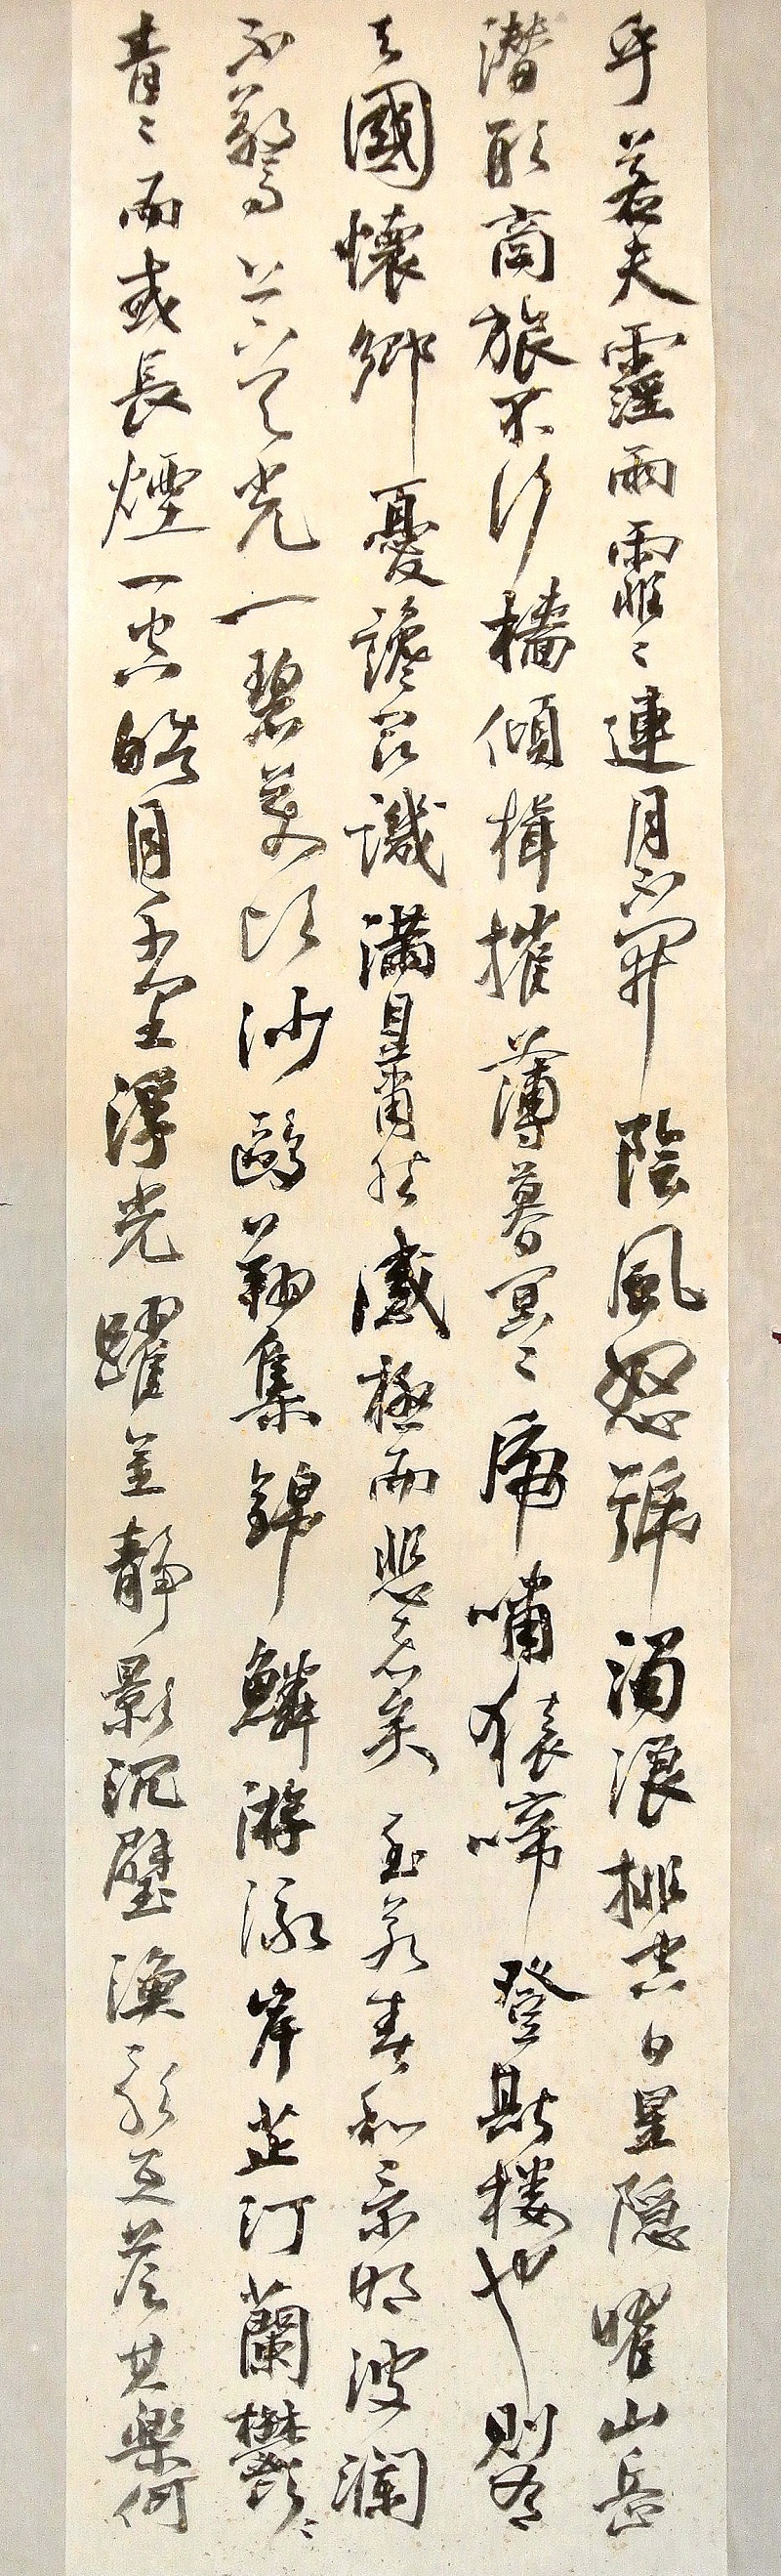 乎若夫霪雨霏〻連月不開陰風怒號濁浪排空日星隱曜山岳
潛形商旅不行檣傾楫摧薄暮冥〻虎嘯猿啼登斯樓也則有
去國懷鄉憂讒畏譏滿目蕭然感極而悲者矣至若春和景明波瀾
不驚上下天光一碧萬頃沙鷗翔集錦鱗游泳岸芷汀蘭鬱〻
青〻而或長煙一空皓月千里浮光躍金靜影沉璧漁歌互答其樂何